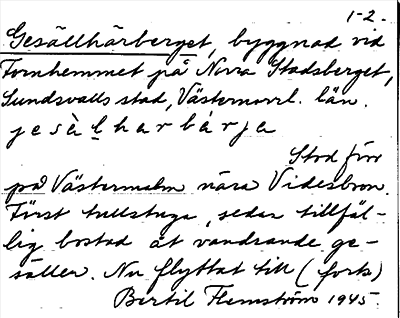 1-2.
Gesällhärberget, byggnad vid
Fornhemmet på Norra Stadsberget,
Sundsvalls stad, Västernorrl. län.
j e s ä̀ l̠ h a r b ä́ r j a
Stod förr
på Västermalm nära Videsbron.
Först tullstuga, sedan tillfäl-
lig bostad åt vandrande ge-
säller. Nu flyttat till (forts)
Bertil Flemström 1945.